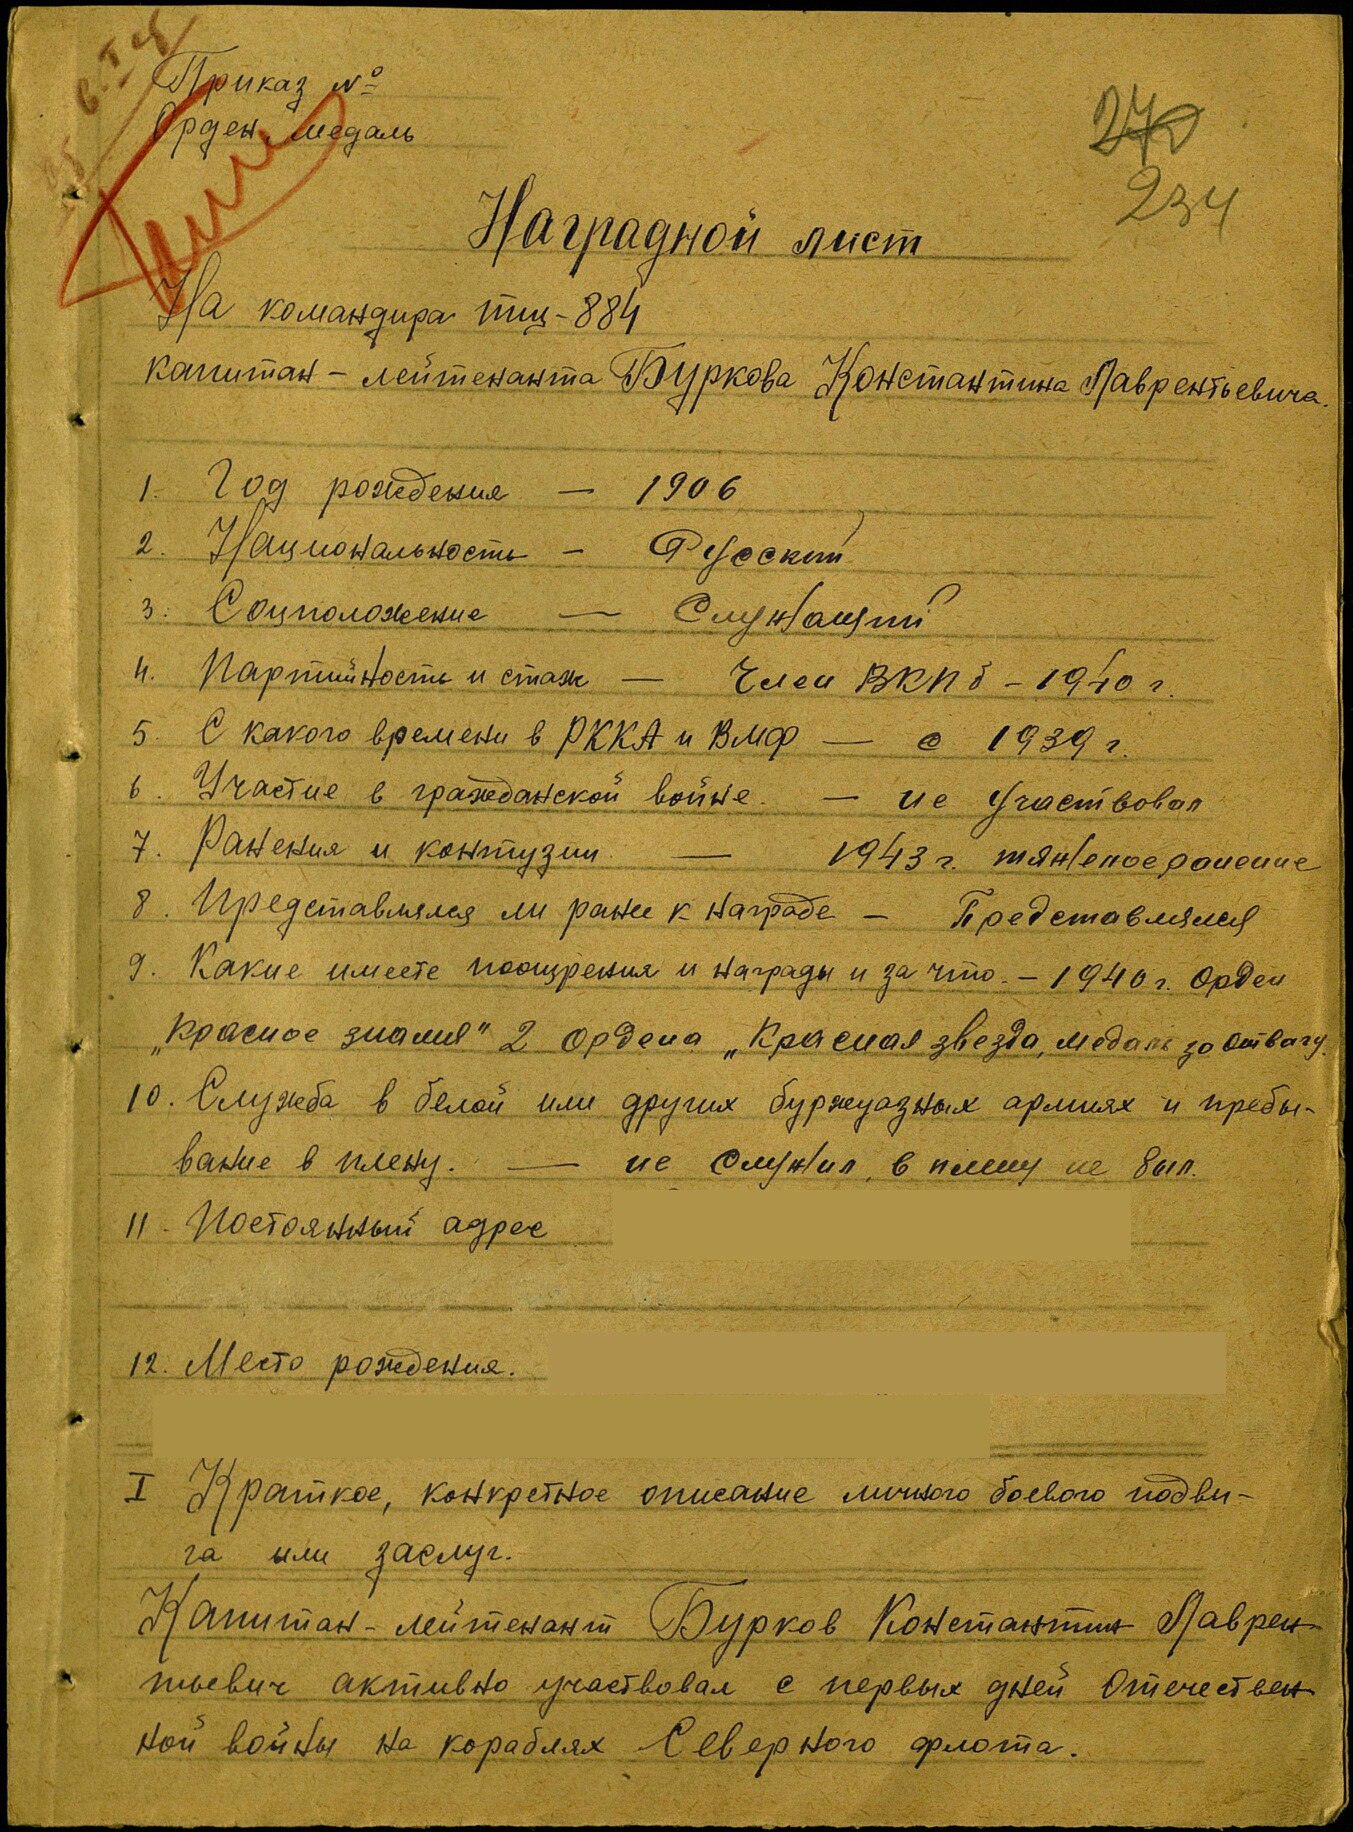 Приказ №
Орден, медаль
270
234
Наградной лист
На командира тщ-884
капитан-лейтенанта Буркова Константина Лаврентьевича.
1. Год рождения — 1906
2. Национальность — Русский
3. Соцположение — Служащий
4. Партийность и стаж — Член ВКПб - 1940 г.
5. С какого времени в РККА и ВМФ — с 1939 г.
6. Участие в гражданской войне. — не участвовал
7. Ранения и контузии — 1943 г. тяжелое ранение
8. Представлялся ли ранее к награде — Представлялся
9. Какие имеете поощрения и награды и за что. - 1940 г. Орден
„Красное знамя" 2 ордена „Красная звезда, медаль за отвагу.
10. Служба в белой или других буржуазных армиях и пребы-
вание в плену. — не служил, в плену не был.
11. Постоянный адрес
12. Место рождения.
I Краткое, конкретное описание личного боевого подви-
га или заслуг.
Капитан-лейтенант Бурков Константин Лаврен-
тьевич активно участвовал с первых дней Отечествен-
ной войны на кораблях Северного флота.